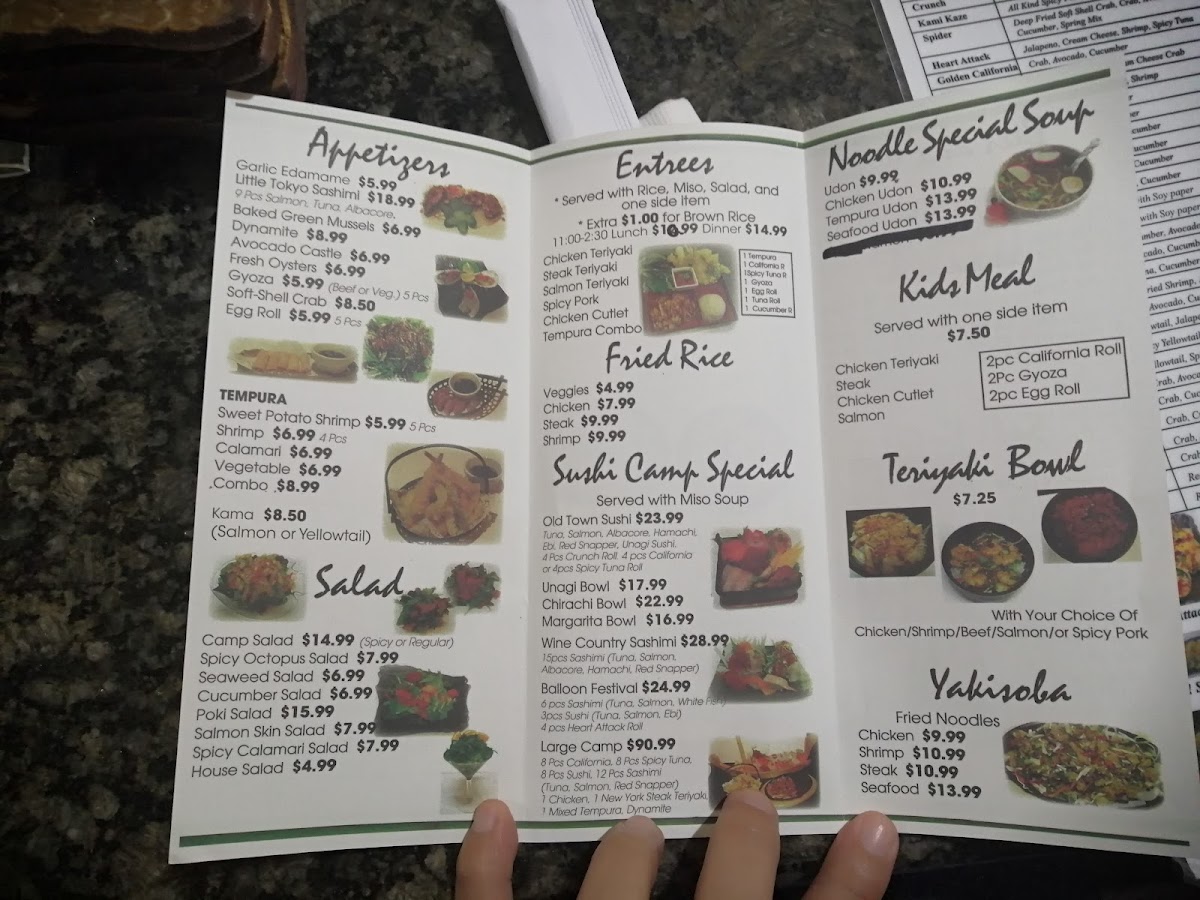 Appetizers
Garlic Edamame $5.99
Little Tokyo Sashimi $18.99
9 Pcs Salmon, Tuna, Albacore,
Baked Green Mussels $6.99
Dynamite $8.99
Avocado Castle $6.99
Fresh Oysters $6.99
Gyoza $5.99 (Beef or Veg.) 5 Pcs
Soft-Shell Crab $8.50
Egg Roll $5.99 5 Pcs
TEMPURA
Sweet Potato Shrimp $5.99 5 Pcs
Shrimp $6.99 4 Pcs
Calamari $6.99
Vegetable $6.99
.Combo $8.99
Kama $8.50
(Salmon or Yellowtail)
Salad
Camp Salad $14.99 (Spicy or Regular)
Spicy Octopus Salad $7.99
Seaweed Salad $6.99
Cucumber Salad $6.99
Poki Salad $15.99
Salmon Skin Salad $7.99
Spicy Calamari Salad $7.99
House Salad $4.99
Entrees
* Served with Rice, Miso, Salad, and
one side item
* Extra $1.00 for Brown Rice
11:00-2:30 Lunch $10.99 Dinner $14.99
Chicken Teriyaki
Steak Teriyaki
Salmon Teriyaki
Spicy Pork
Chicken Cutlet
Tempura Combo
1 Tempura
1 California R
1Spicy Tuna R
1 Gyoza
1 Egg Roll
1 Tuna Roll
1 Cucumber R
Fried Rice
Veggies $4.99
Chicken $7.99
Steak $9.99
Shrimp $9.99
Sushi Camp Special
Served with Miso Soup
Old Town Sushi $23.99
Tuna, Salmon, Albacore, Hamachi,
Ebi, Red Snapper, Unagi Sushi.
4 Pcs Crunch Roll, 4 pcs California
or 4pcs Spicy Tuna Roll
Unagi Bowl $17.99
Chirachi Bowl $22.99
Margarita Bowl $16.99
Wine Country Sashimi $28.99
15pcs Sashimi (Tuna, Salmon,
Albacore, Hamachi, Red Snapper)
Balloon Festival $24.99
6 pcs Sashimi (Tuna, Salmon, White Fish)
3pcs Sushi (Tuna, Salmon, Ebi)
4 pcs Heart Attack Roll
Large Camp $90.99
8 Pcs California, 8 Pcs Spicy Tuna,
8 Pcs Sushi, 12 Pcs Sashimi
(Tuna, Salmon, Red Snapper)
1 Chicken, 1 New York Steak Teriyaki,
1 Mixed Tempura, Dynamite
Noodle Special Soup
Udon $9.99
Chicken Udon $10.99
Tempura Udon $13.99
Seafood Udon $13.99
Kids Meal
Served with one side item
$7.50
Chicken Teriyaki
Steak
Chicken Cutlet
Salmon
2pc California Roll
2Pc Gyoza
2pc Egg Roll
Teriyaki Bowl
$7.25
With Your Choice Of
Chicken/Shrimp/Beef/Salmon/or Spicy Pork
Yakisoba
Fried Noodles
Chicken $9.99
Shrimp $10.99
Steak $10.99
Seafood $13.99
Crunch
Kami Kaze
Spider
Heart Attack
Golden California
All Kind Spicy
Deep Fried Soft Shell Crab, Crab,
Cucumber, Spring Mix
Jalapeno, Cream Cheese, Shrimp, Spicy Tuna
Crab, Avocado, Cucumber
Cheese Crab
Shrimp
Cucumber
with Soy paper
with Soy paper